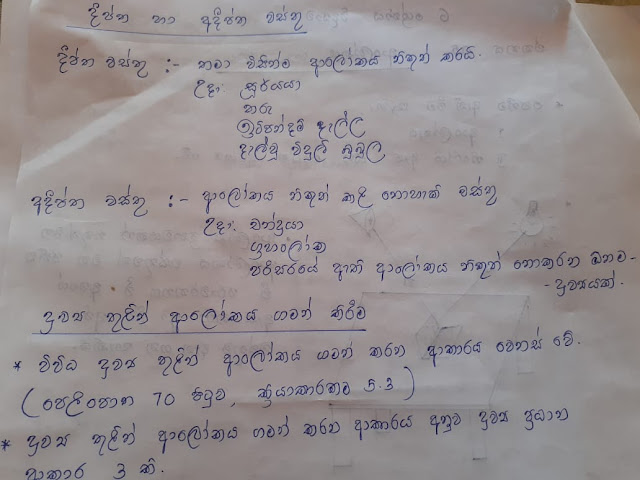 දීප්ත හා අදීප්ත වස්තු
දීප්ත වස්තු :- තමා විසින්ම ආලෝකය නිකුත් කරයි.
උදා: සූර්යයා
තරු
ඉටිපන්දම් දැල්ල
දැල්වූ විදුලි බුබුල
අදීප්ත වස්තු :- ආලෝකය නිකුත් කළ නොහැකි වස්තු
උදා: චන්ද්‍රයා
ග්‍රහලෝක
පරිසරයේ ඇති ආලෝකය නිකුත් නොකරන ඕනම-
- ද්‍රව්‍යයක්.
ද්‍රව්‍ය තුළින් ආලෝකය ගමන් කිරීම
* විවිධ ද්‍රව්‍ය තුළින් ආලෝකය ගමන් කරන ආකාරය වෙනස් වේ.
(පෙළපොත 70 පිටුව, ක්‍රියාකාරකම 5.3)
* ද්‍රව්‍ය තුළින් ආලෝකය ගමන් කරන ආකාරය අනුව ද්‍රව්‍ය ප්‍රධාන
ආකාර 3 කි.